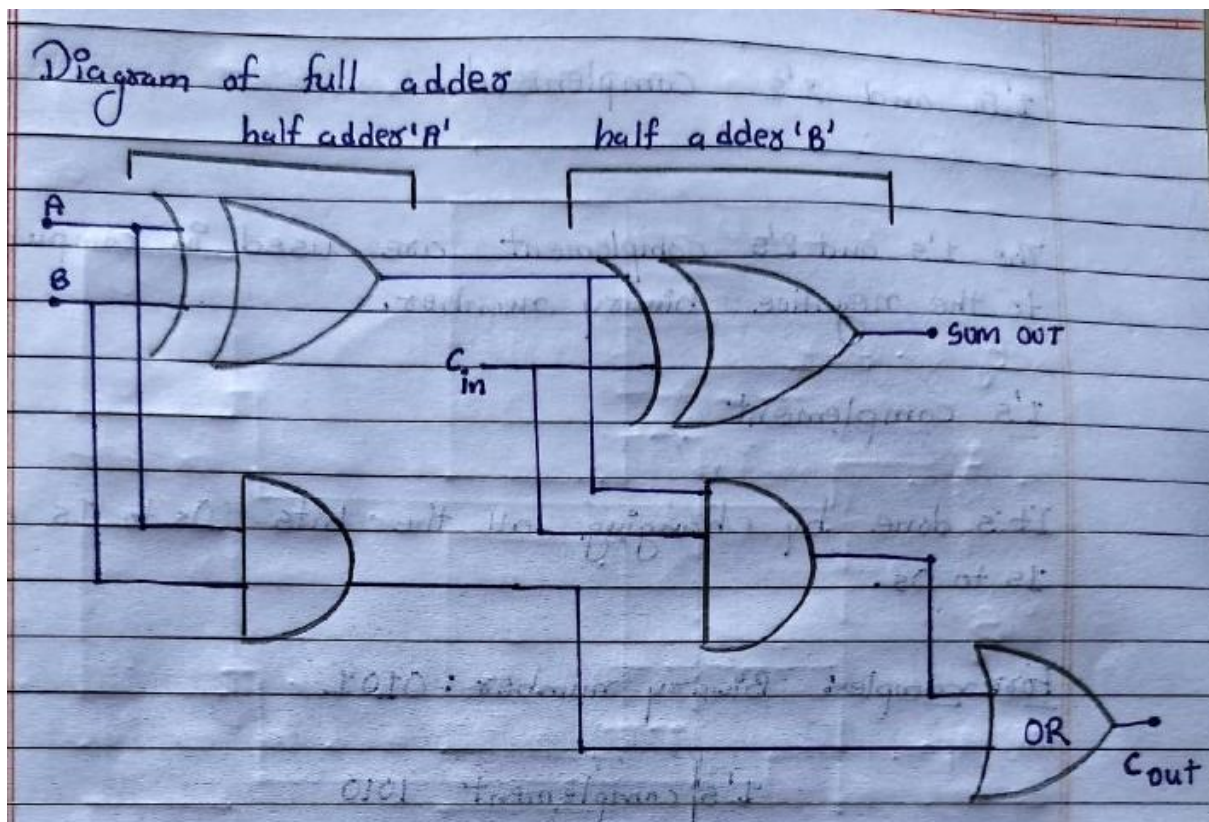 Diagram of full adder
half adder 'A' half adder 'B'
A
B
SUM OUT
Cin
OR
Cout